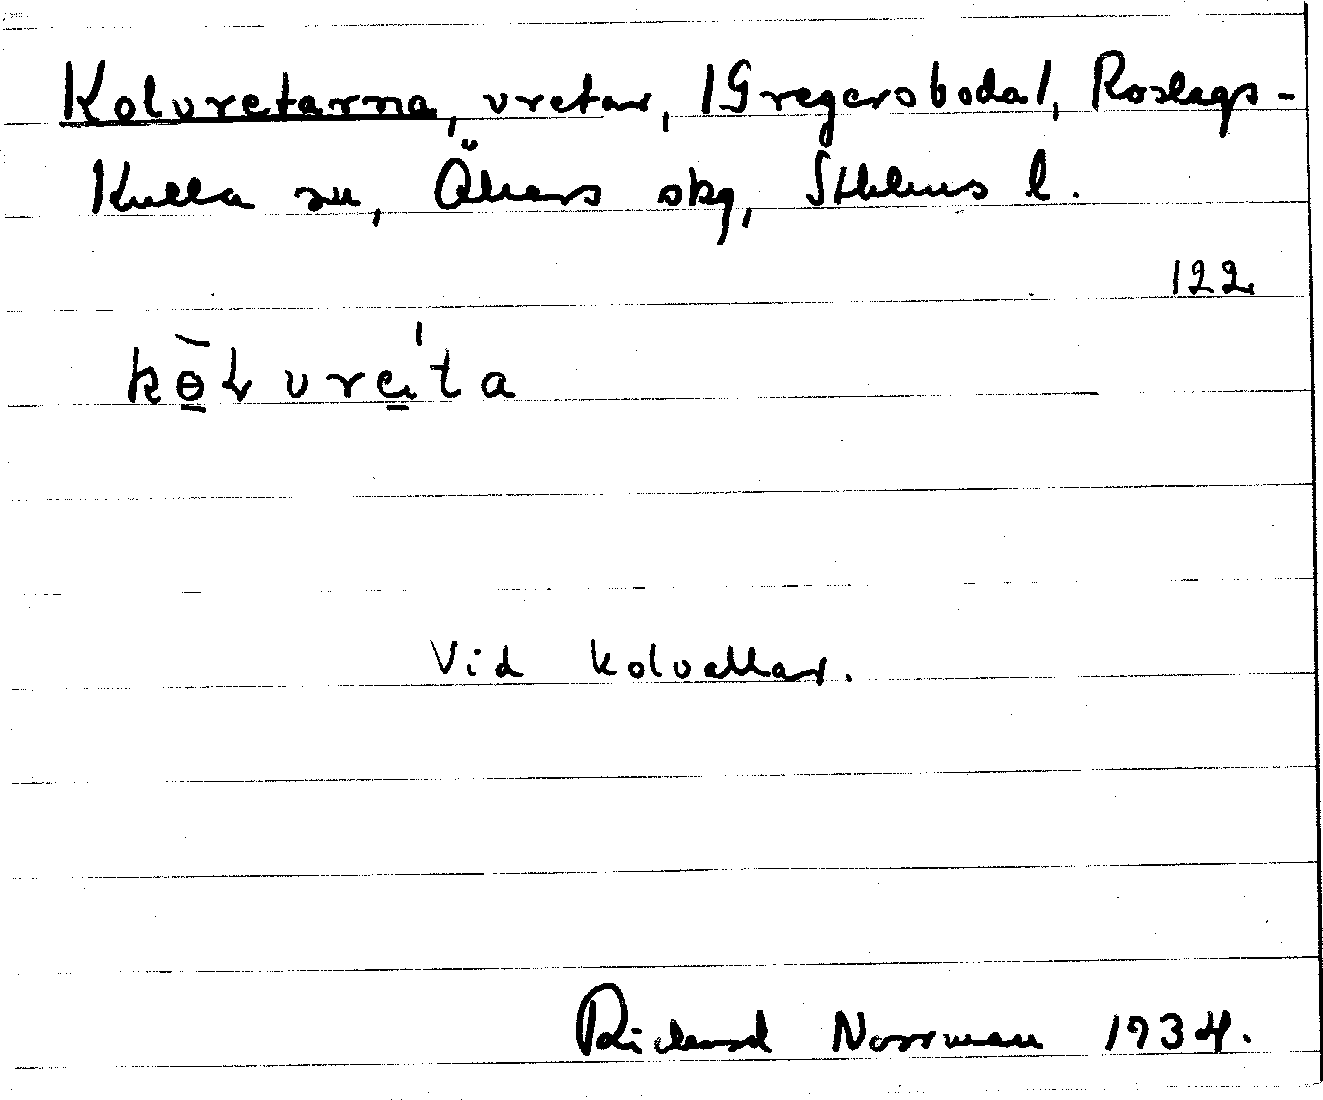 Kolvretarna, vretar, /Gregersboda/, Roslags-
Kulla sn, Åkers skg, Sthlms l.
122.
Vid kolvallar.
Rickard Norrman 1934.